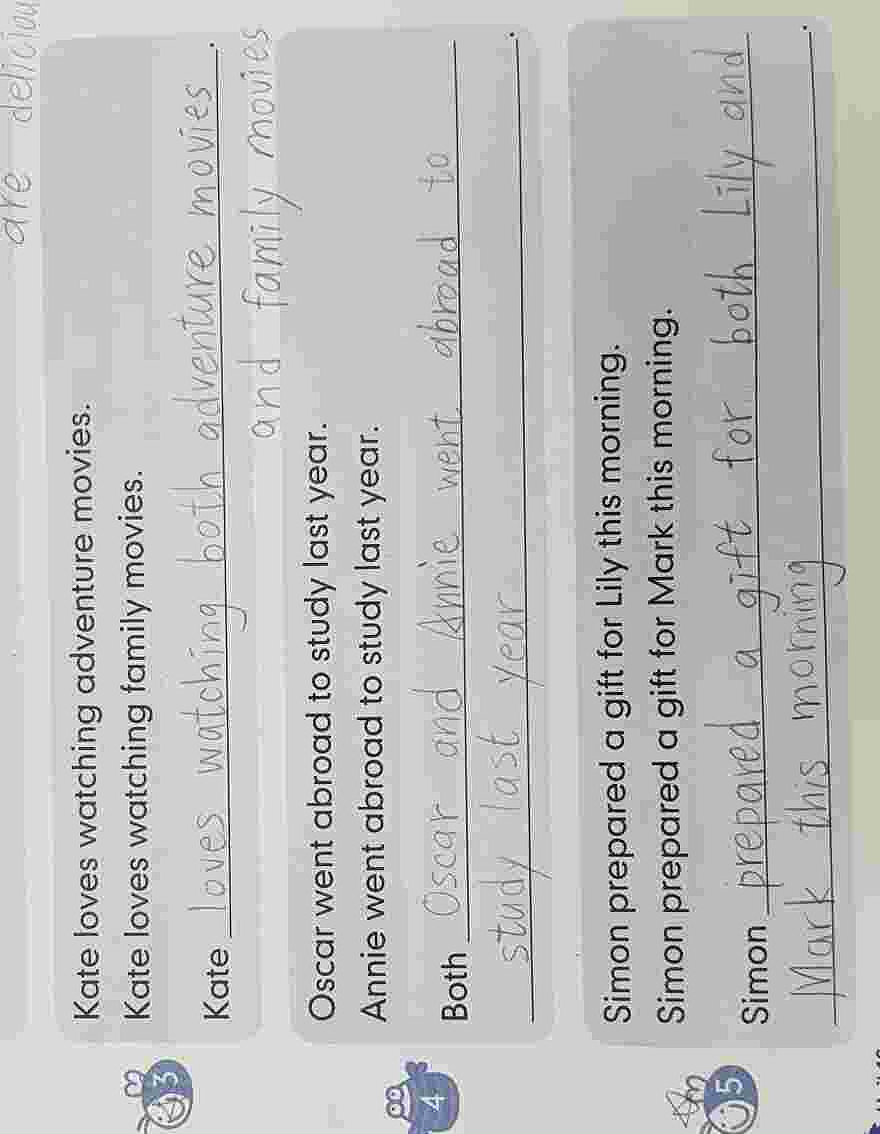 are deliciou
3
Kate loves watching adventure movies.
Kate loves watching family movies.
Kate loves watching both adventure movies.
and family movies
4
Oscar went abroad to study last year.
Annie went abroad to study last year.
Both Oscar and Annie went abroad to
study last year.
5
Simon prepared a gift for Lily this morning.
Simon prepared a gift for Mark this morning.
Simon prepared a gift for both Lily and
Mark this morning.